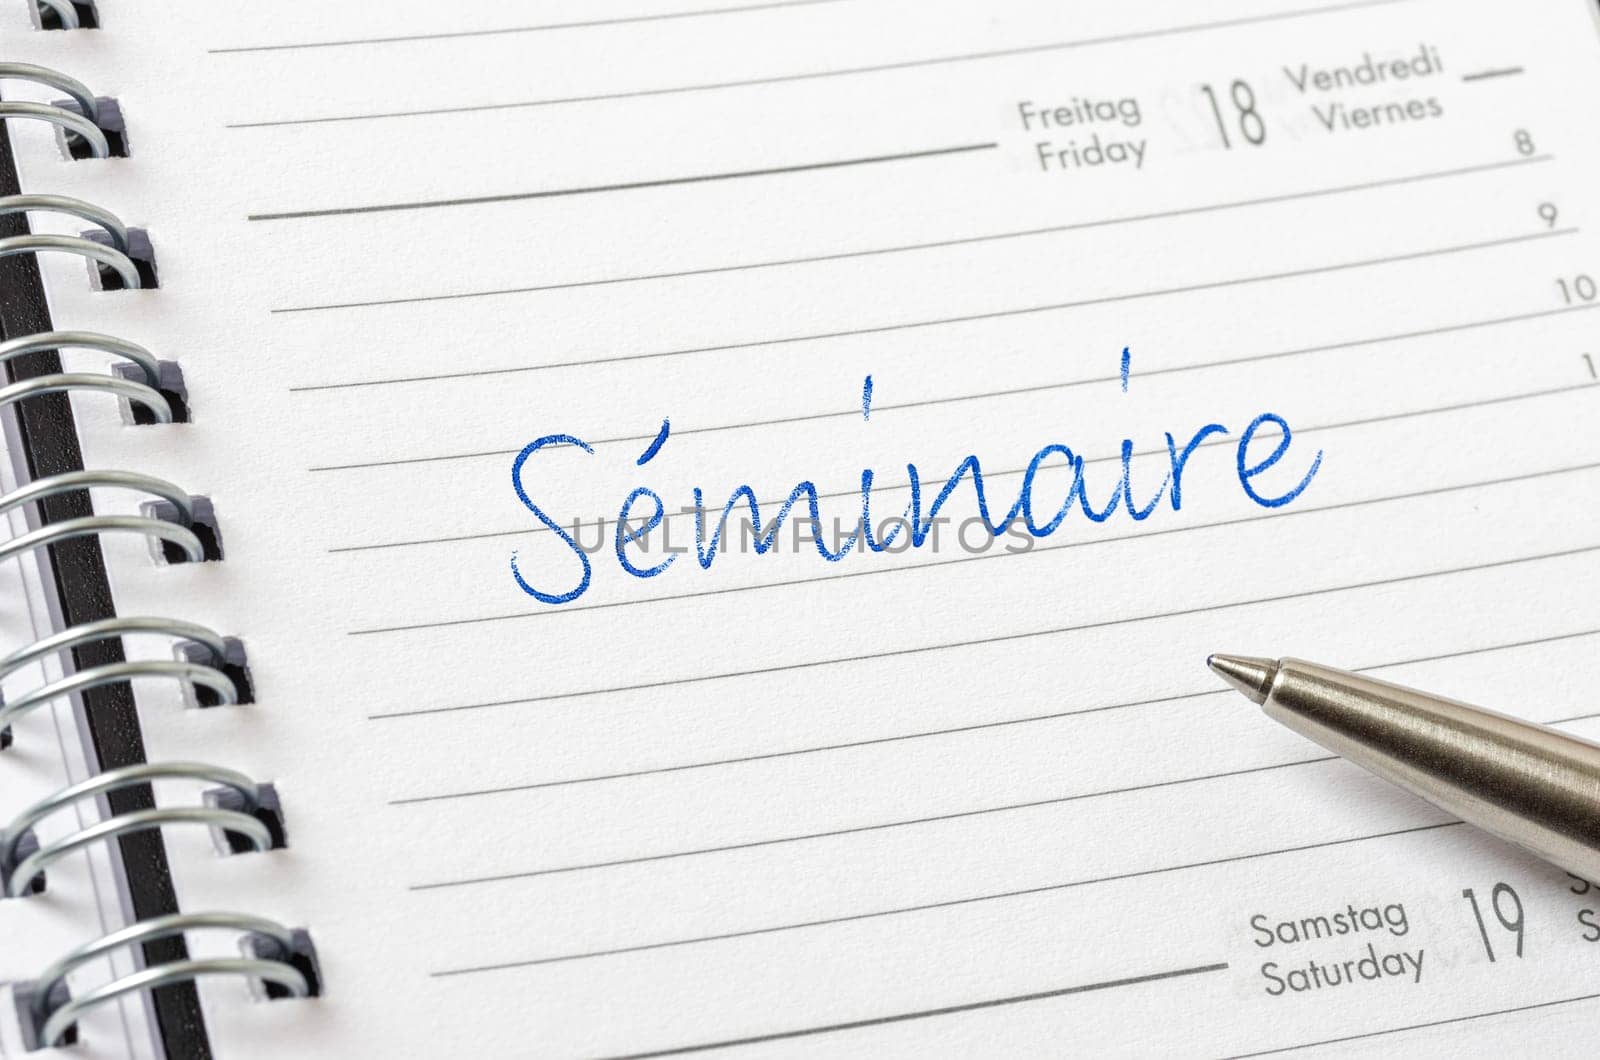 Freitag 18 Vendredi
Friday Viernes
8
9
10
1
Séminaire
UNLIMPHOTOS
Samstag 19
Saturday